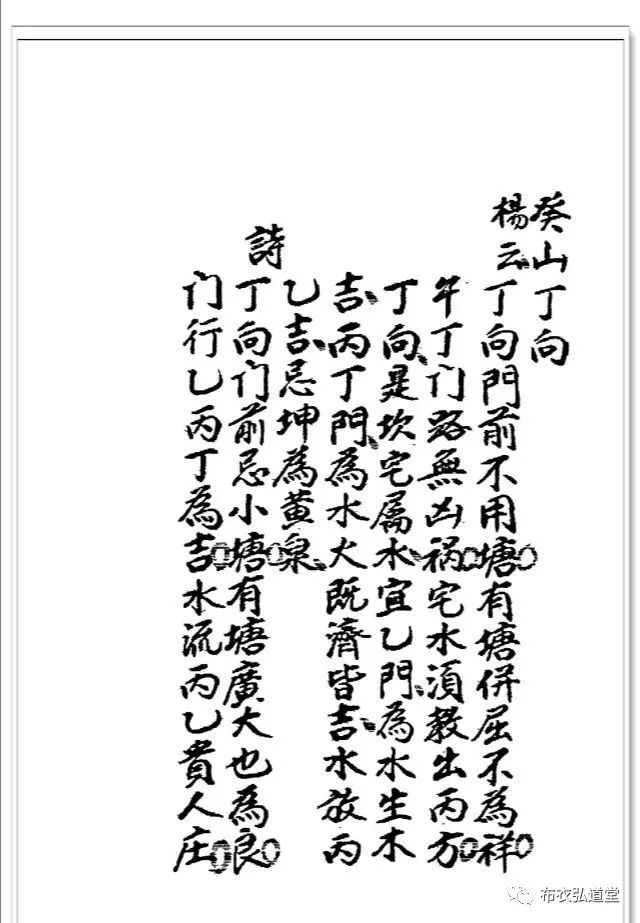 癸山丁向
楊云丁向門前不用塘有塘併屈不為祥
午丁门路無凶祸宅水須教出丙方
丁向是坎宅屬水宜乙門為水生木
吉丙丁門為水火既濟皆吉水放丙
乙吉忌坤為黄泉
詩丁向门前忌小塘有塘廣大也為良
门行乙丙丁為吉水流丙乙貴人庄
布衣弘道堂